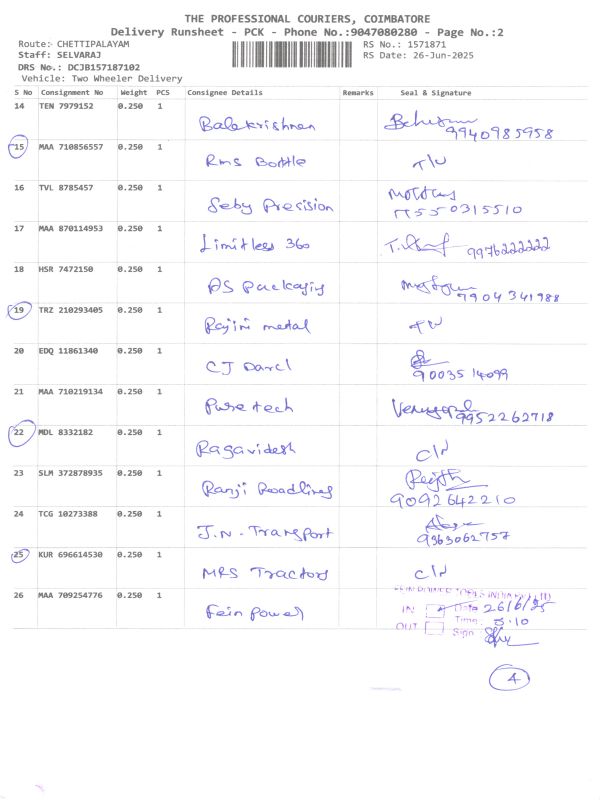 THE PROFESSIONAL COURIERS, COIMBATORE
Delivery Runsheet - PCK - Phone No.:9047080280 - Page No.:2
Route:- CHETTIPALAYAM
RS No.: 1571871
Staff: SELVARAJ
RS Date: 26-Jun-2025
DRS No.: DCJB157187102
Vehicle: Two Wheeler Delivery
S No Consignment No Weight PCS Consignee Details Remarks Seal & Signature
14 TEN 7979152 0.250 1
Balakrishnan
9940985958
15 MAA 710856557 0.250 1
Rms Bottle
16 TVL 8785457 0.250 1
Seby Precision
0315510
17 MAA 870114953 0.250 1
Limitless 360
9976222222
18 HSR 7472150 0.250 1
PS Packaging
9904341988
19 TRZ 210293405 0.250 1
Rajini metal
20 EDQ 11861340 0.250 1
CJ Darcl
9003514099
21 MAA 710219134 0.250 1
Puretech
Venugopal 9952262718
22 MDL 8332182 0.250 1
Ragavidesh
C/N
23 SLM 372878935 0.250 1
Ranji Roadlines
9092642210
24 TCG 10273388 0.250 1
J.N. Transport
9363062757
25 KUR 696614530 0.250 1
MRS Tractors
C/N
26 MAA 709254776 0.250 1
Fein Power
IN Date 26/6/25
OUT Time: 5.10
Sign
4